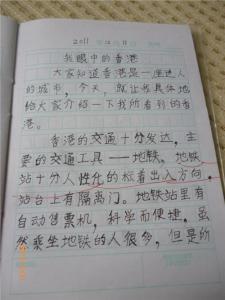 2011 年 12月 11日
我眼中的香港
大家知道香港是一座迷人
的城市，今天，就让我具体地
给大家介绍一下我所看到的香
港。
香港的交通十分发达，主
要的交通工具——地铁。地铁
站十分人性化的标着出入方向，
站台上有隔离门。地铁站里有
自动售票机，科学而便捷。虽
然乘坐地铁的人很多，但是所